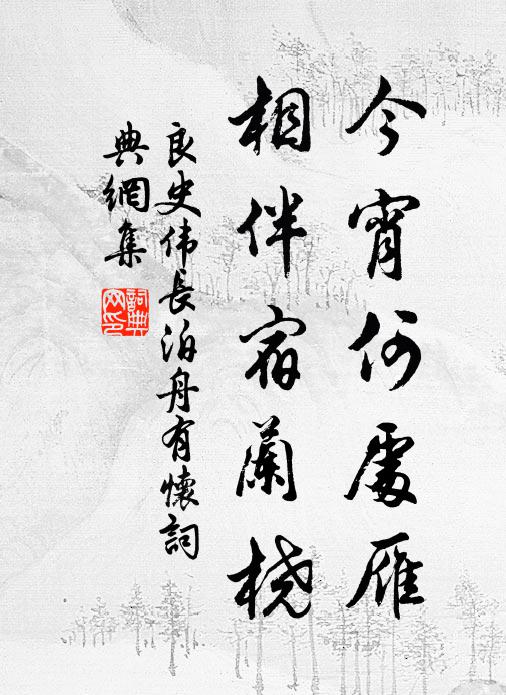 今宵何處雁
相伴宿蘭橈
良史伟長泊舟有懷詞
典網集
詞典
网印